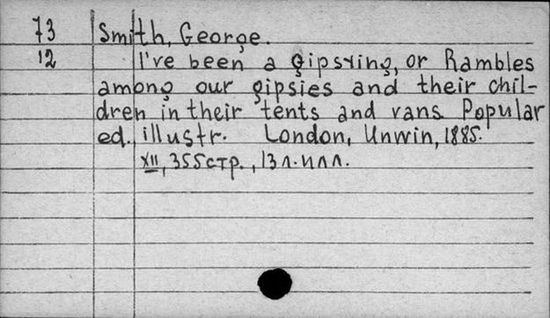 73 Smith, George.
12 I've been a gipsying, or Rambles
among our gipsies and their chil-
dren in their tents and vans. Popular
ed., illustr. London, Unwin, 1885.
XII, 355стр., 13л.илл.